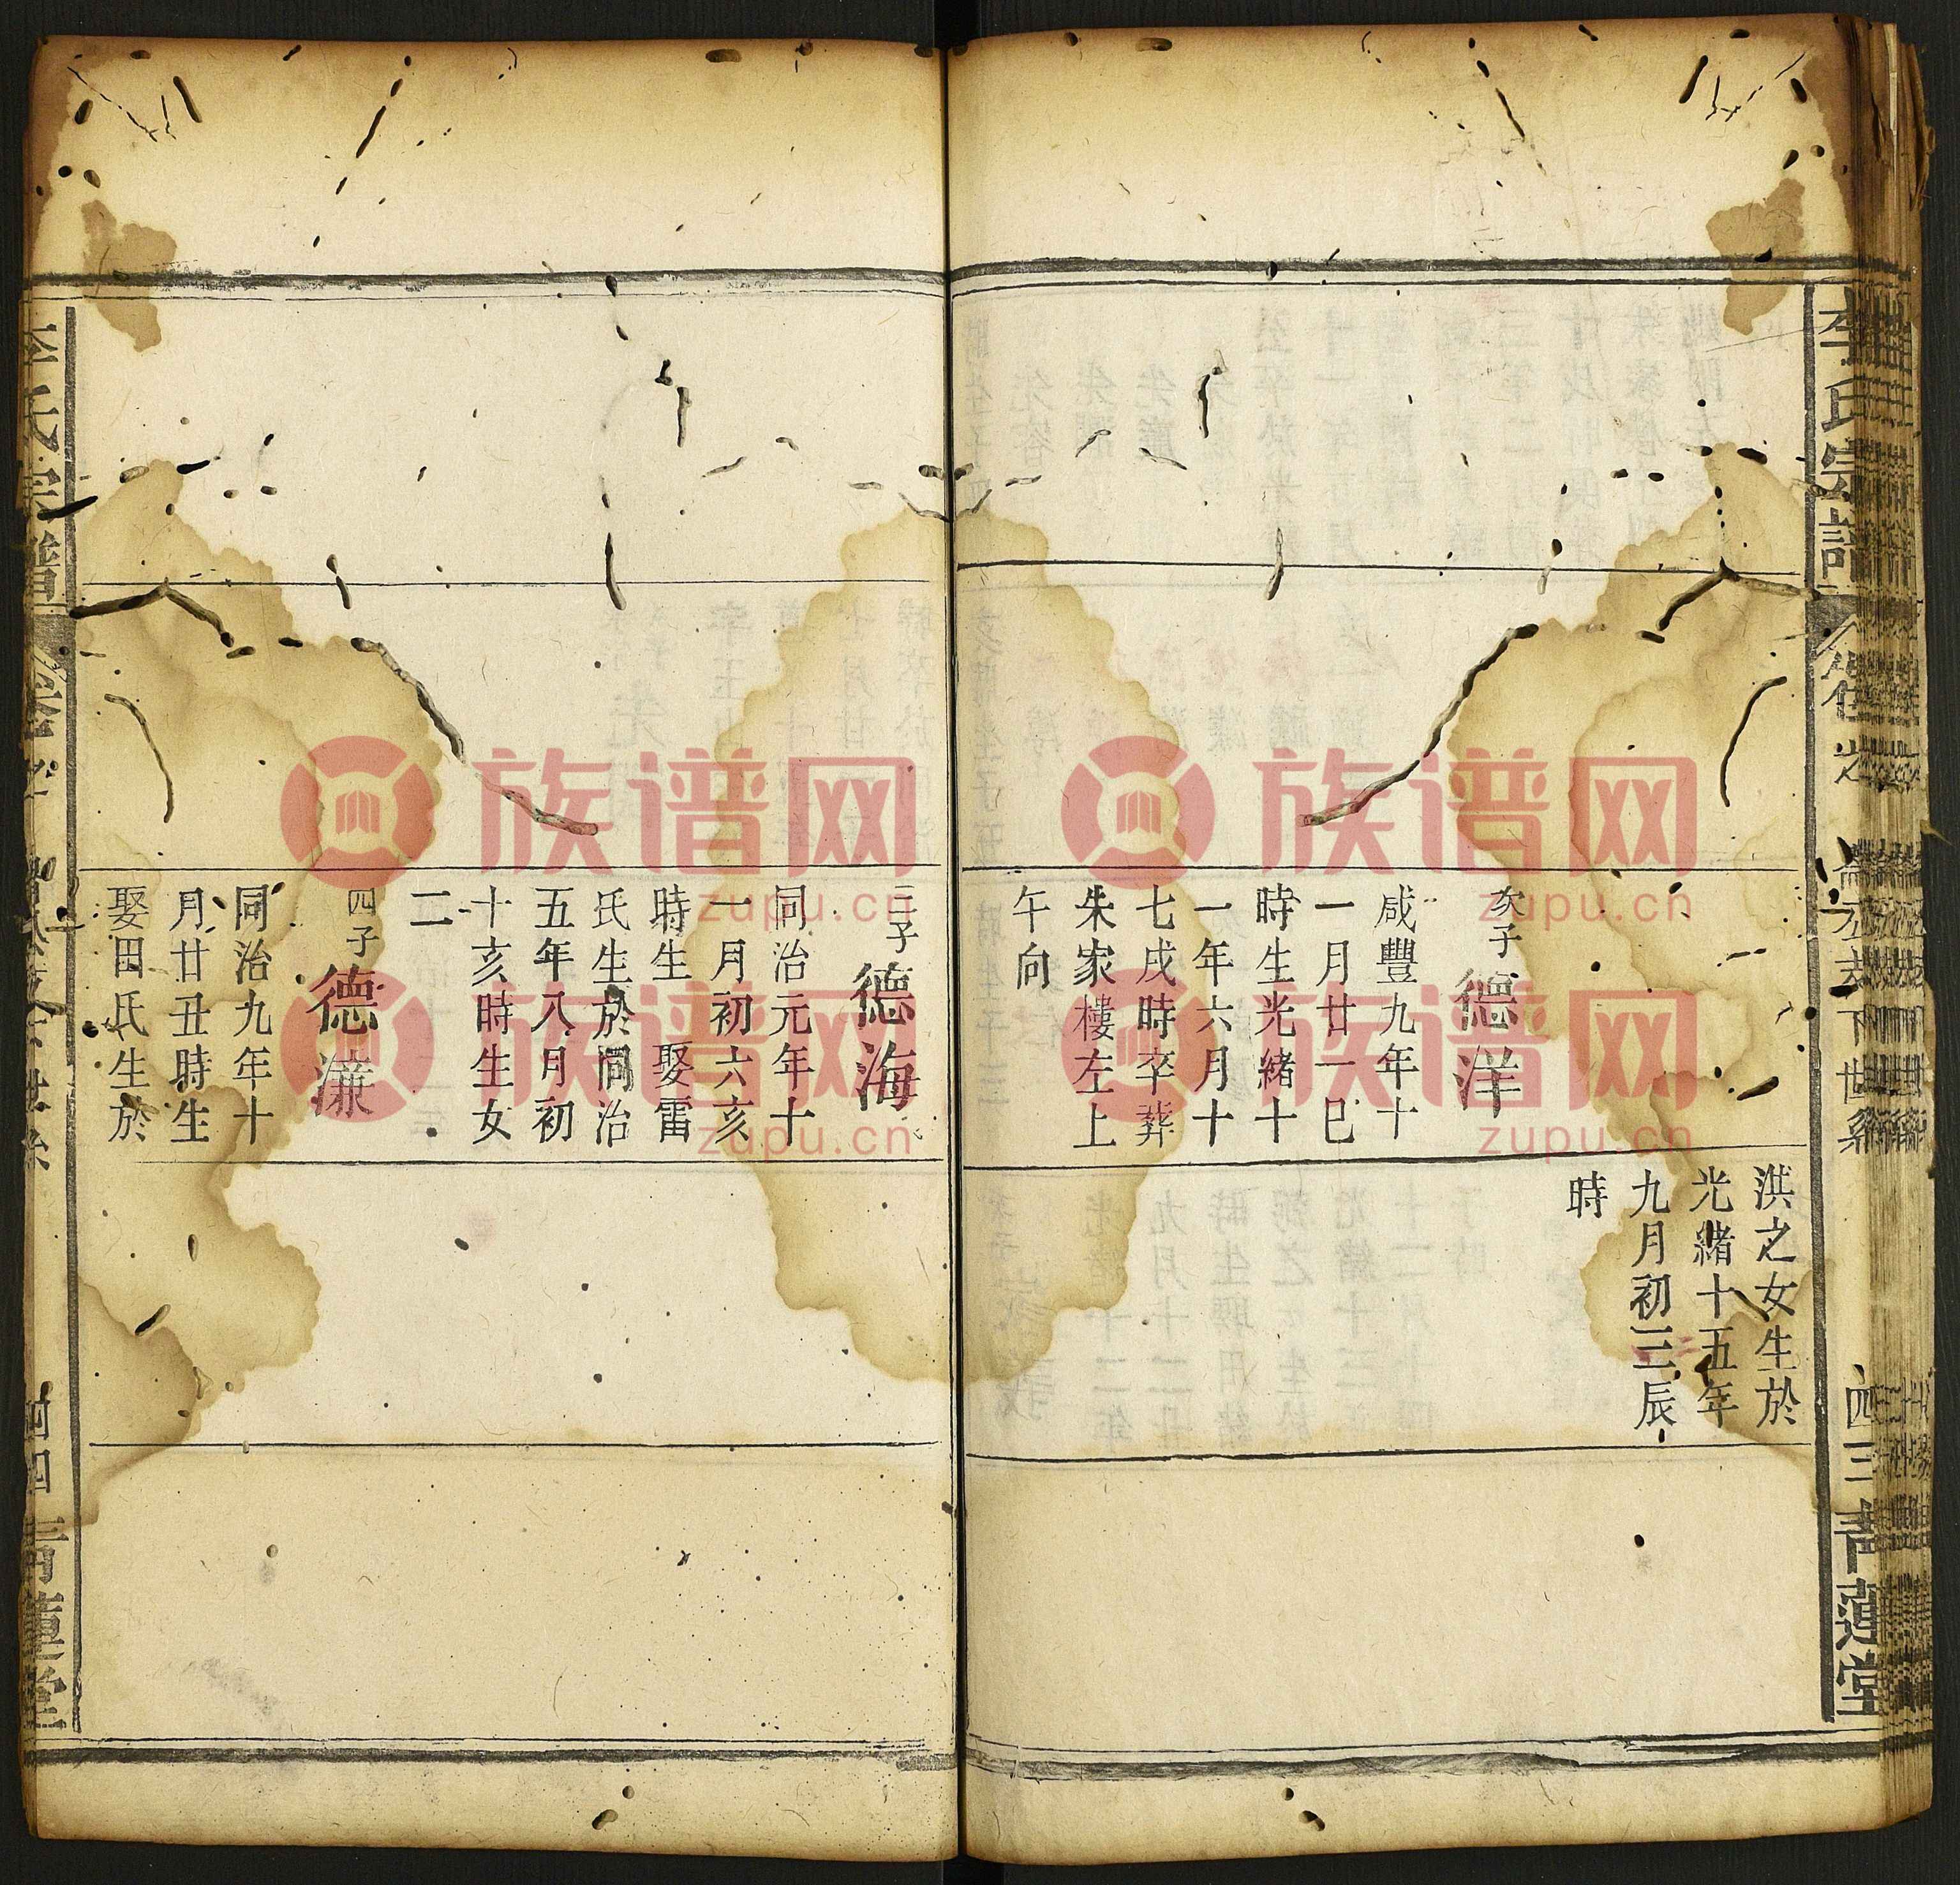 李氏宗譜
卷之
下世系
四三
青蓮堂
洪之女生於
光緒十五年
九月初三辰
時
次子
德洋
咸豐九年十
一月廿一巳
時生光緒十
一年六月十
七戌時卒葬
朱家樓左上
午向
三子
德海
同治元年十
一月初六亥
時生 娶雷
氏生於同治
五年八月初
十亥時生女
二
四子
德濂
同治九年十
月廿丑時生
娶田氏生於
李氏宗譜
四四
青蓮堂
族谱网
zupu.cn
族谱网
zupu.cn
族谱网
zupu.cn
族谱网
zupu.cn